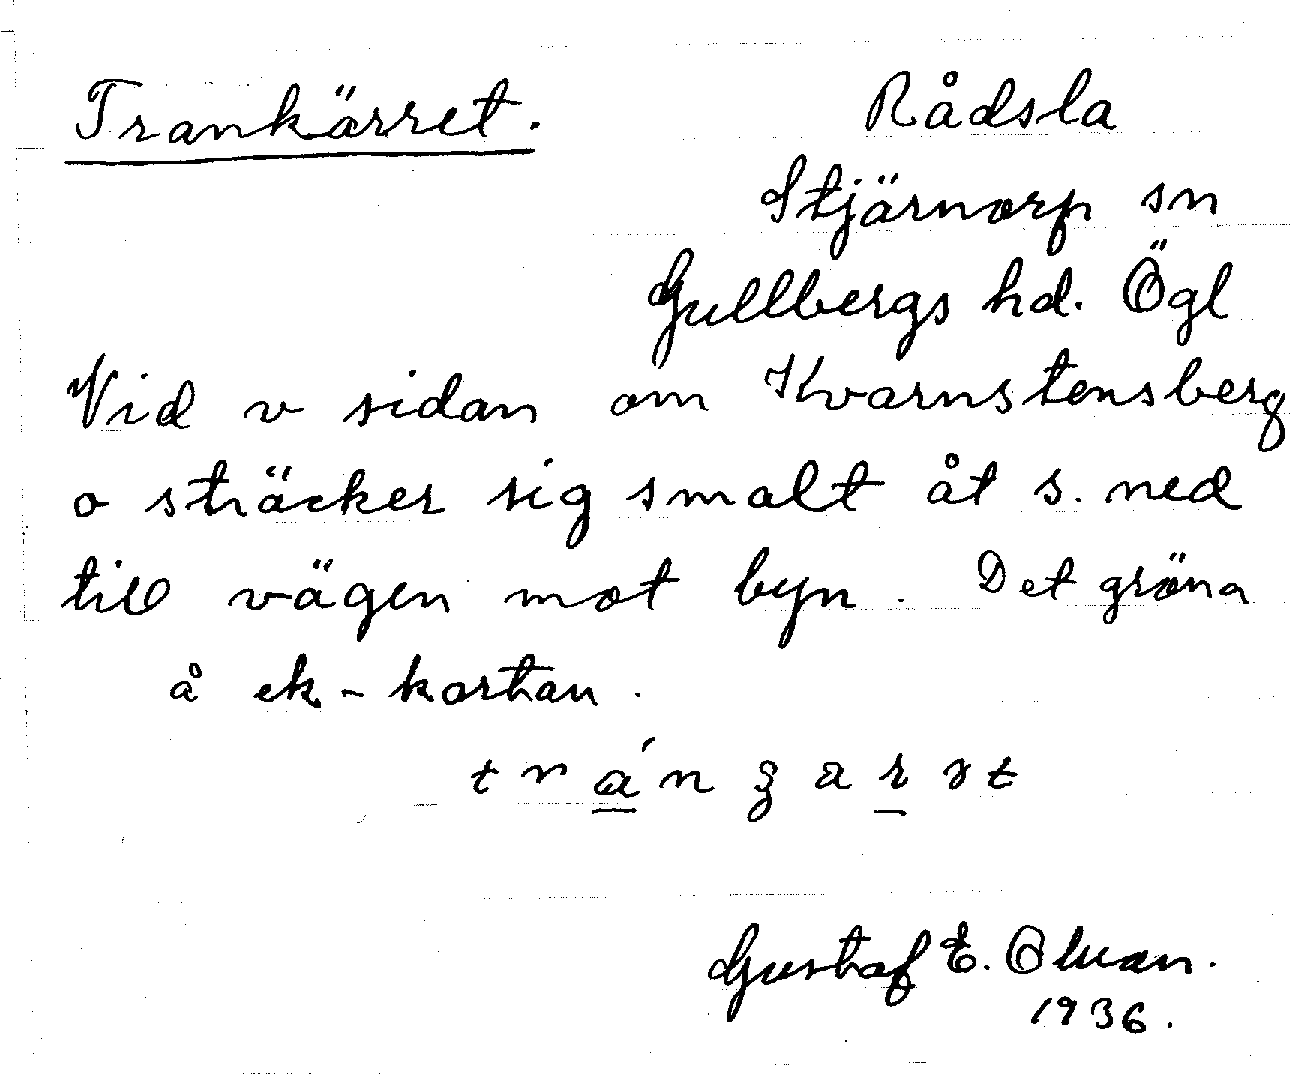 Trankärret. Rådsla
Stjärnorp sn
Gullbergs hd. Ögl
Vid v sidan om Kvarnstensberg
o sträcker sig smalt åt s. ned
till vägen mot byn. Det gröna
å ek-kartan.
Gustaf E.
1936.